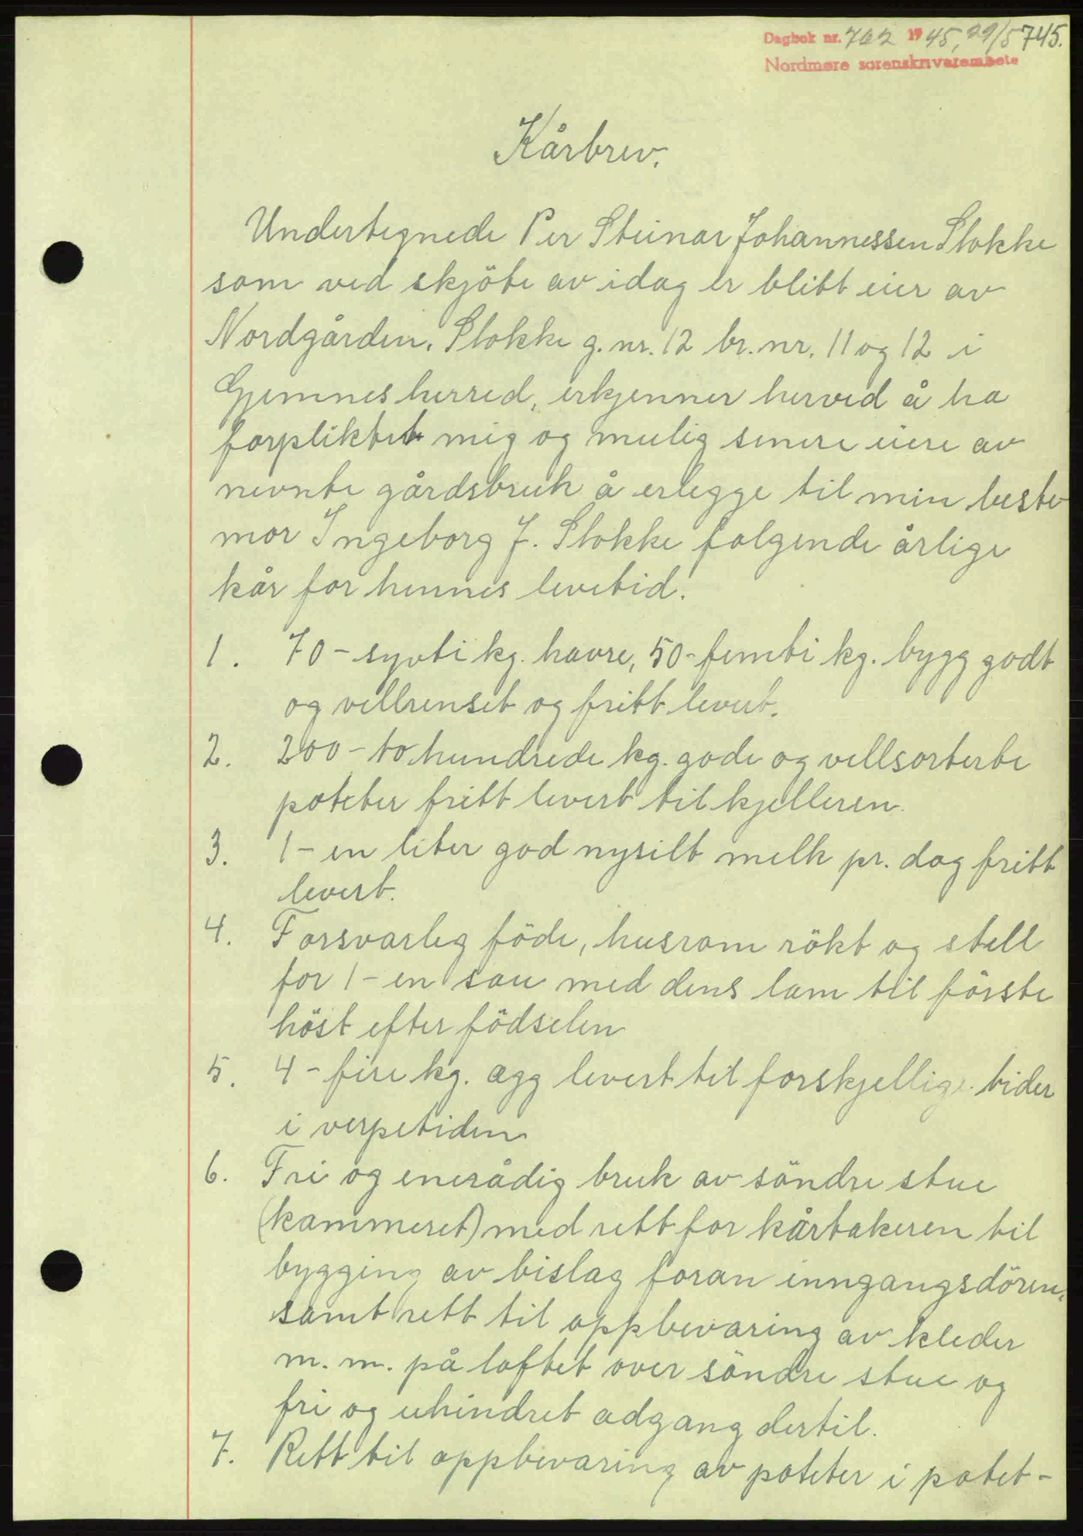 Dagbok nr. 762 1945, 29/5 745.
Nordmøre sorenskriverembete
Kårbrev.
Undertegnede Per Steinar Johannessen Stokke
som ved skjöte av idag er blitt eier av
Nordgården, Stokke g.nr. 12 br.nr. 11 og 12 i
Gjemnes herred, erkjenner herved å ha
forpliktet mig og mulig senere eiere av
nevnte gårdsbruk å erlegge til min beste-
mor Ingeborg J. Stokke følgende årlige
kår for hennes levetid:
1. 70 - sytti kg. havre, 50 - femti kg. bygg godt
og vellrenset og fritt levert.
2. 200 - to hundrede kg. gode og vellsorterte
poteter fritt levert til kjelleren.
3. 1 - en liter god nysilt melk pr. dag fritt
levert.
4. Forsvarlig föde, husrom rökt og stell
for 1 - en sau med dens lam til förste
höst efter födselen
5. 4 - fire kg. egg levert til forskjellige tider
i verpetiden
6. Fri og enerådig bruk av söndre stue
(kammeret) med rett for kårtakeren til
bygging av bislag foran inngangsdören,
samt rett til oppbevaring av kleder
m.m. på loftet over söndre stue og
fri og uhindret adgang dertil.
7. Rett til oppbevaring av poteter i potet-